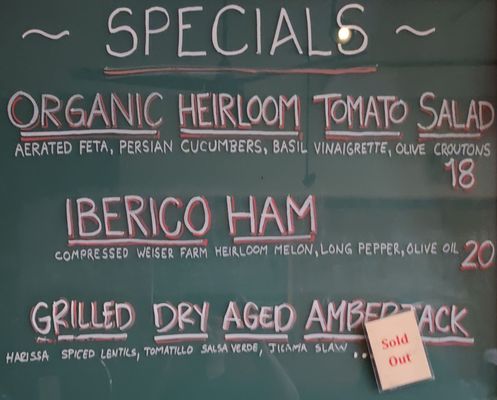 ~ SPECIALS ~
ORGANIC HEIRLOOM TOMATO SALAD
AERATED FETA, PERSIAN CUCUMBERS, BASIL VINAIGRETTE, OLIVE CROUTONS
18
IBERICO HAM
COMPRESSED WEISER FARM HEIRLOOM MELON, LONG PEPPER, OLIVE OIL
20
GRILLED DRY AGED AMBERJACK
HARISSA SPICED LENTILS, TOMATILLO SALSA VERDE, JICAMA SLAW ...
Sold
Out